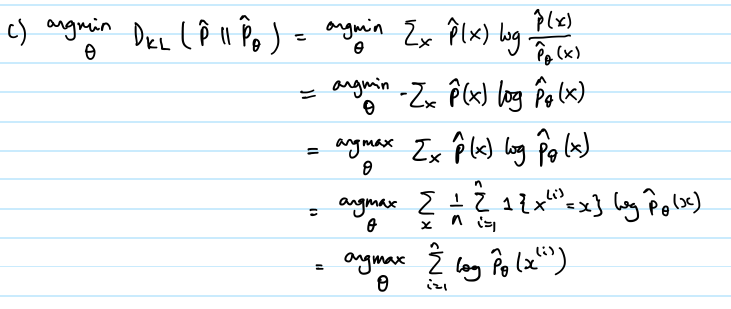 c) argmin_θ D_KL ( p̂ || p̂_θ ) = argmin_θ Σ_x p̂(x) log p̂(x) / p̂_θ(x)
= argmin_θ -Σ_x p̂(x) log p̂_θ(x)
= argmax_θ Σ_x p̂(x) log p̂_θ(x)
= argmax_θ Σ_x 1/n Σ_{i=1}^n 1{x^(i)=x} log p̂_θ(x)
= argmax_θ Σ_{i=1}^n log p̂_θ(x^(i))